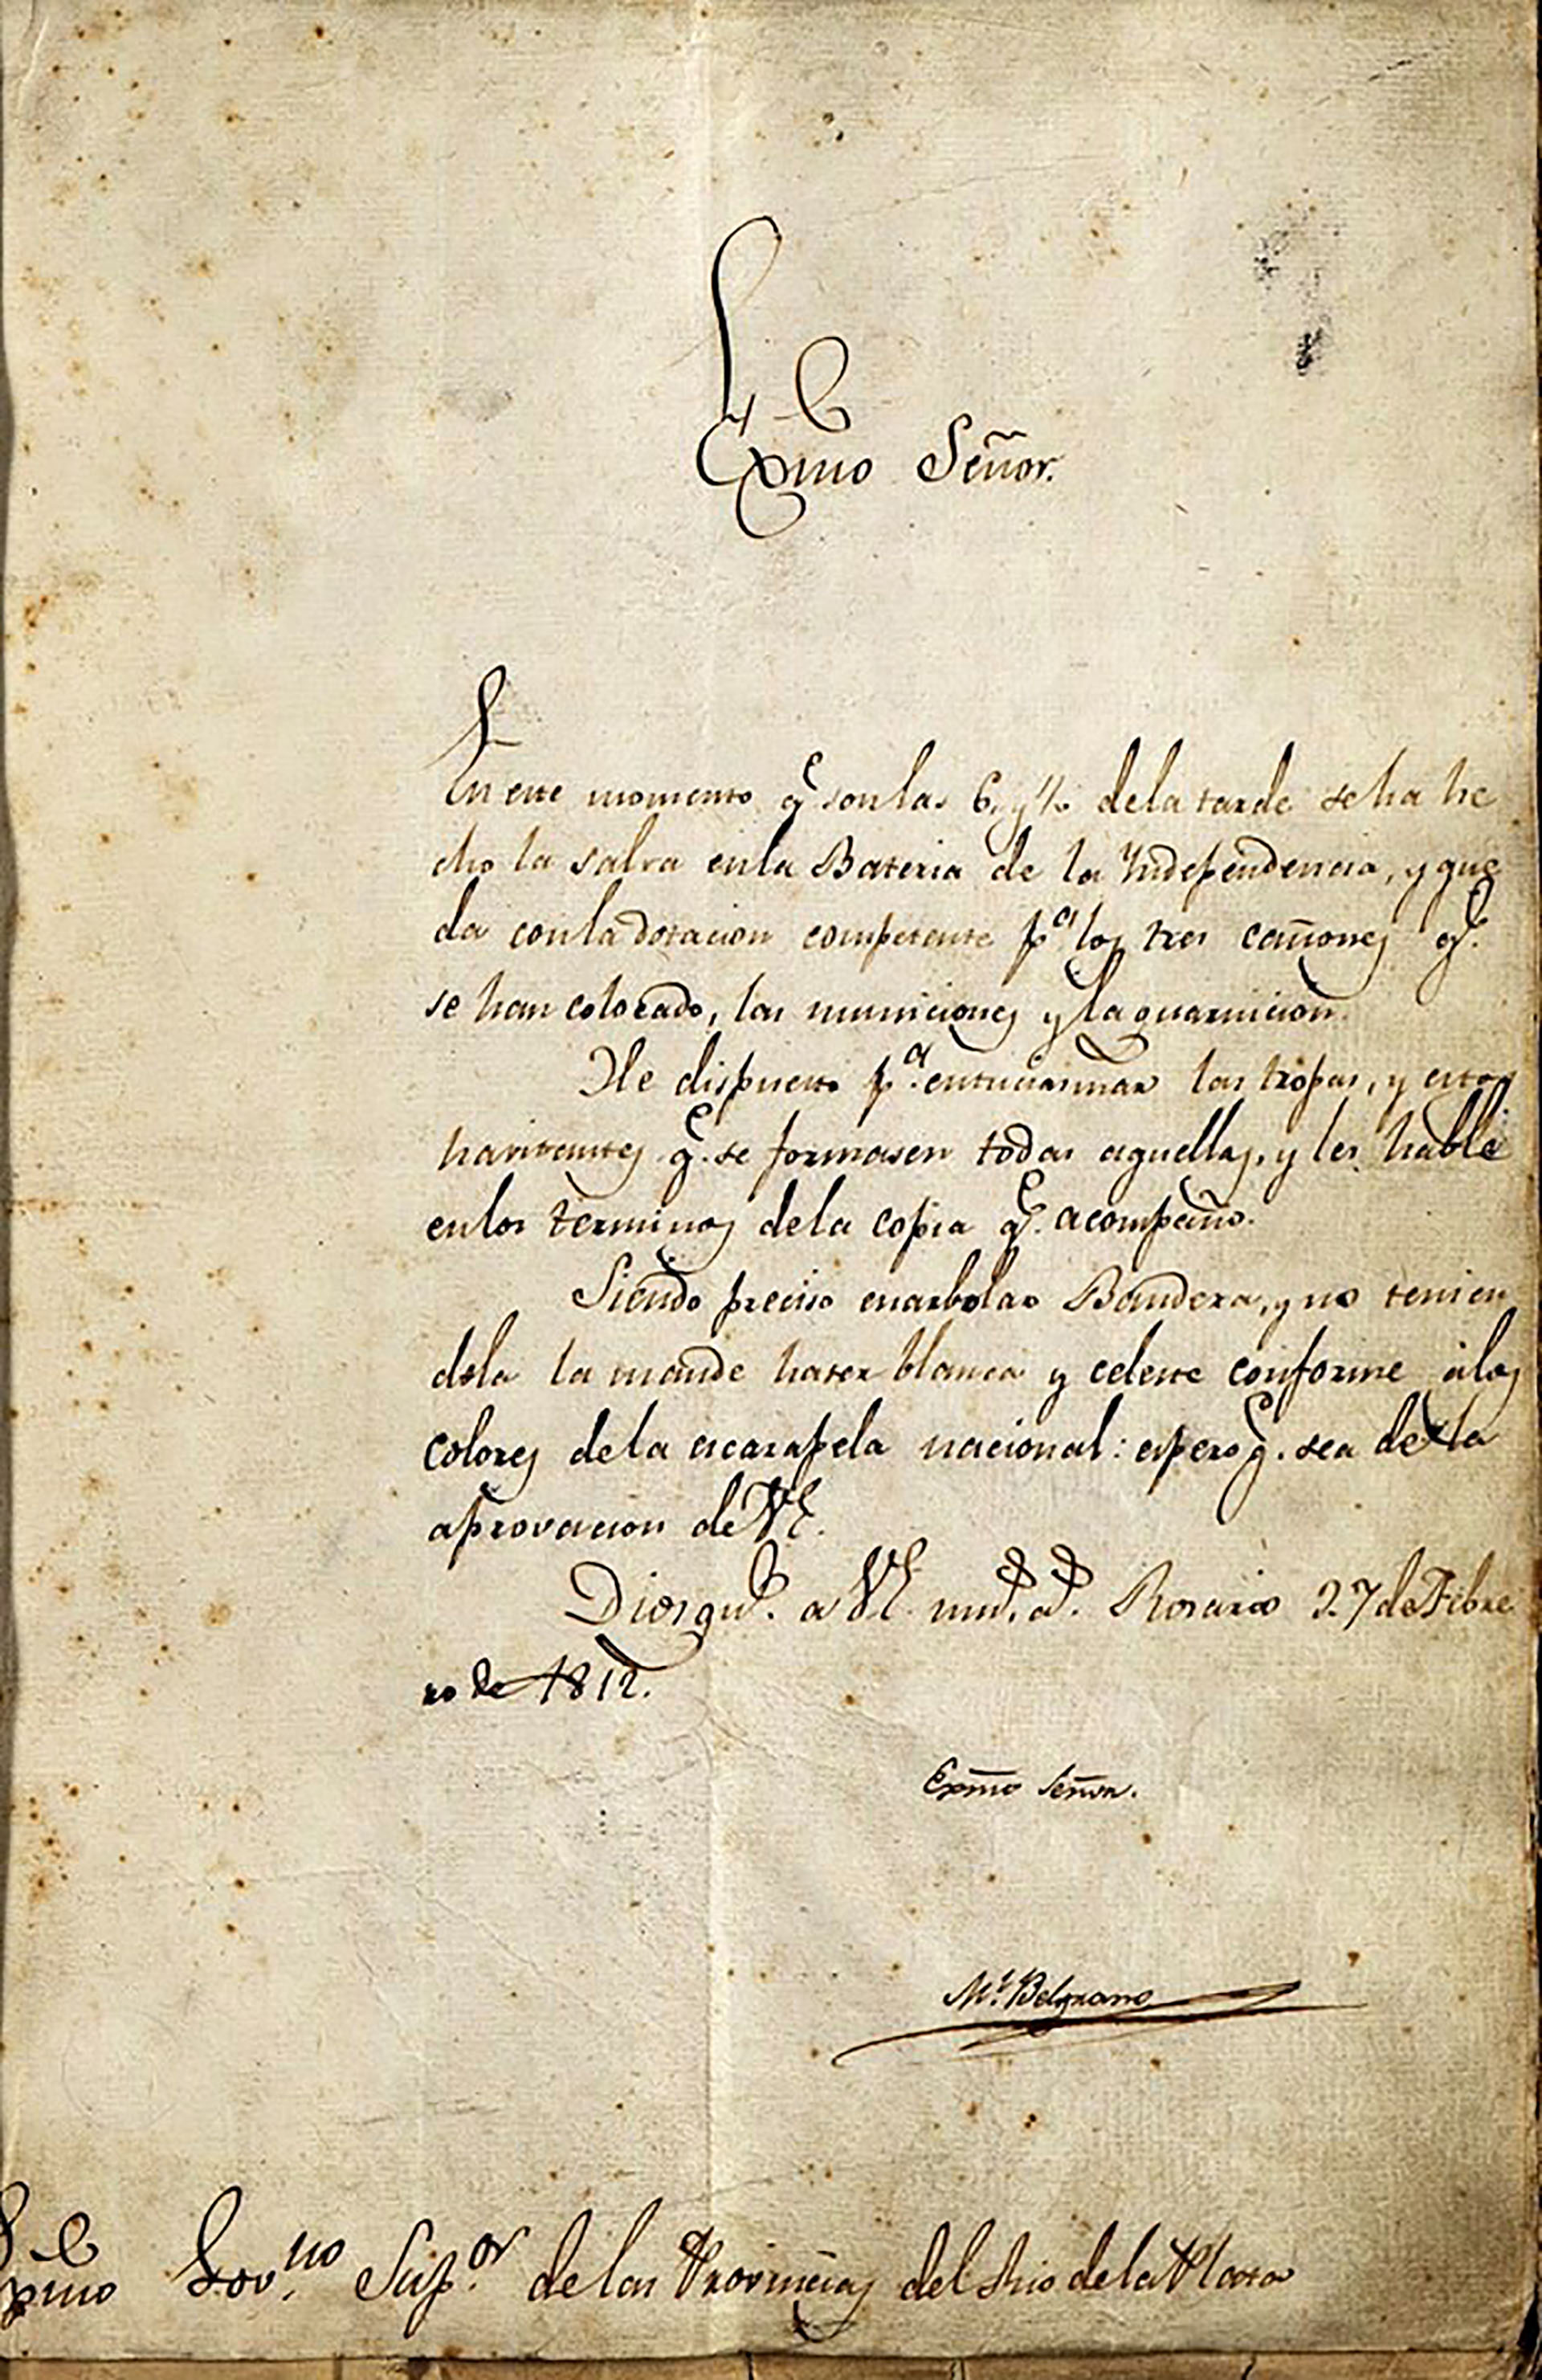 Exmo Señor.
En este momento q.e son las 6. y ½ de la tarde se ha he
cho la salva en la Bateria de la Yndependencia, y que
da con la dotacion competente p.a los tres cañones q.e
se han colocado, las municiones y la guarnicion.
He dispuesto p.a entuciasmar las tropas, y estos
havitantes q.e se formasen todas aquellas, y les hablé
en los terminos de la copia q.e acompaño.
Siendo preciso enarbolar Bandera, y no tenien
dola la mandé hacer blanca y celeste conforme á los
colores de la escarapela nacional: espero q.e sea de la
aprovacion de VE.
Dios gu.e a VE. mu.s a.s Rosario 27 de Febre
ro de 1812.
Exmo Señor.
M.l Belgrano
Exmo Gov.no Sup.or de las Provincias del Rio de la Plata